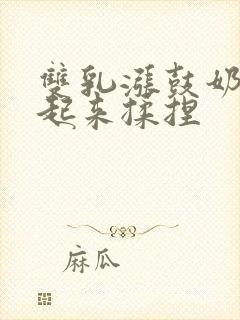 雙乳漲鼓奶
起来揉捏
麻瓜